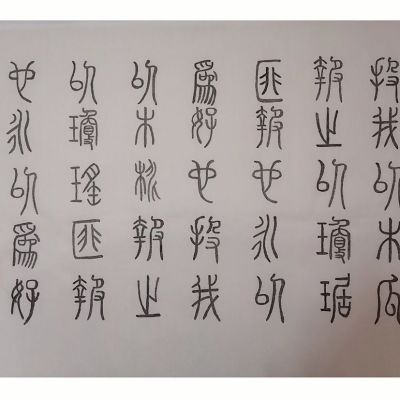 投我以木瓜
報之以瓊琚
匪報也永以
爲好也投我
以木桃報之
以瓊瑤匪報
也永以爲好